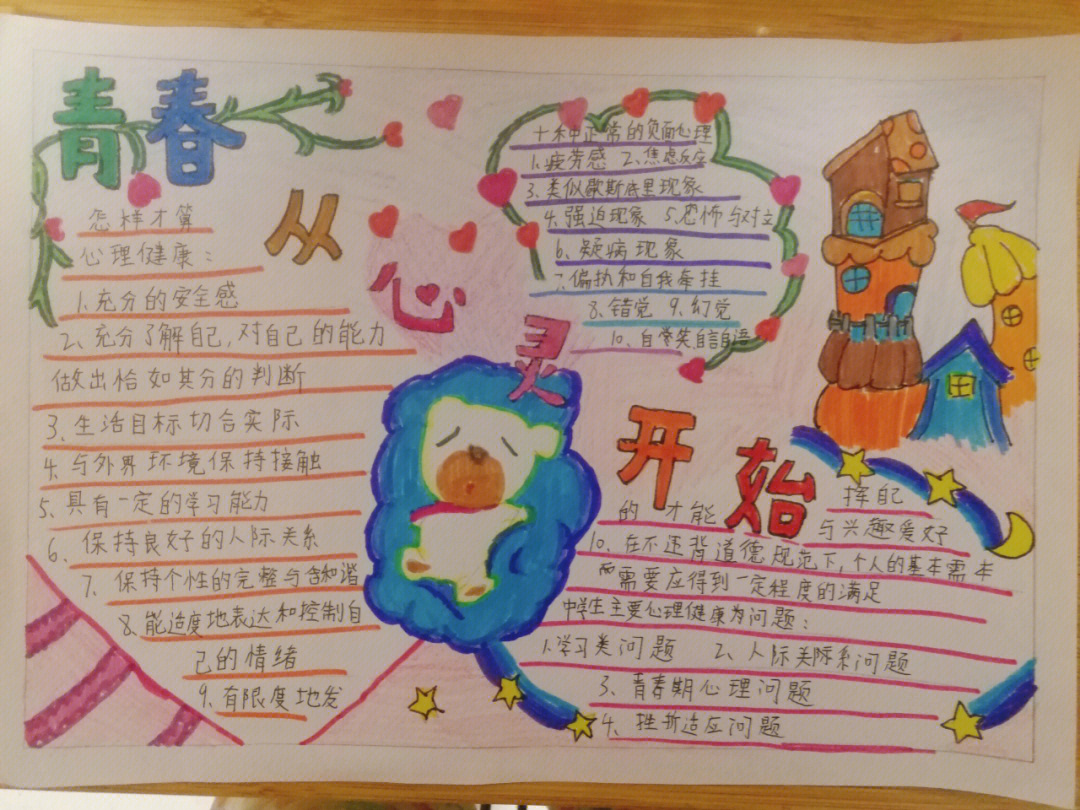 青春从心灵开始
怎样才算
心理健康：
1.充分的安全感
2、充分了解自己,对自己的能力
做出恰如其分的判断
3、生活目标切合实际
4、与外界环境保持接触
5、具有一定的学习能力
6、保持良好的人际关系
7、保持个性的完整与和谐
8、能适度地表达和控制自
己的情绪
9、有限度地发
挥自己
的才能
与兴趣爱好
10、在不违背道德规范下,个人的基本需本
而需要应得到一定程度的满足
十种正常的负面心理
1.疲劳感 2、焦虑反应
3、类似歇斯底里现象
4、强迫现象 5、恐怖与对立
6、疑病现象
7、偏执和自我牵挂
8、错觉 9、幻觉
10、自常笑自言自语
中学生主要心理健康为问题：
1.学习类问题 2、人际关际系问题
3、青春期心理问题
4、挫折适应问题